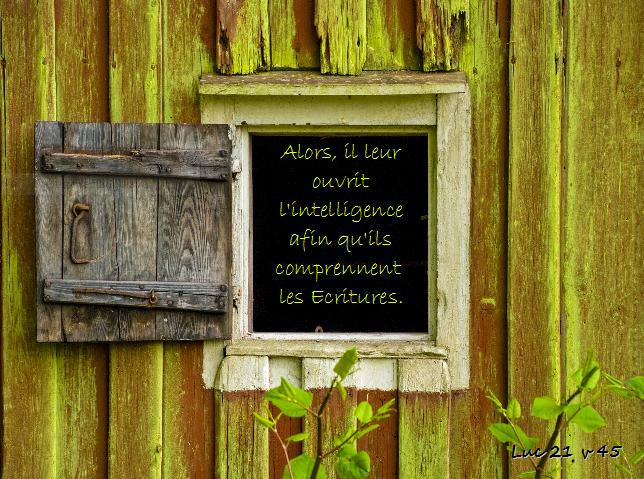 Alors, il leur
ouvrit
l'intelligence
afin qu'ils
comprennent
les Ecritures.
Luc 21 v 45